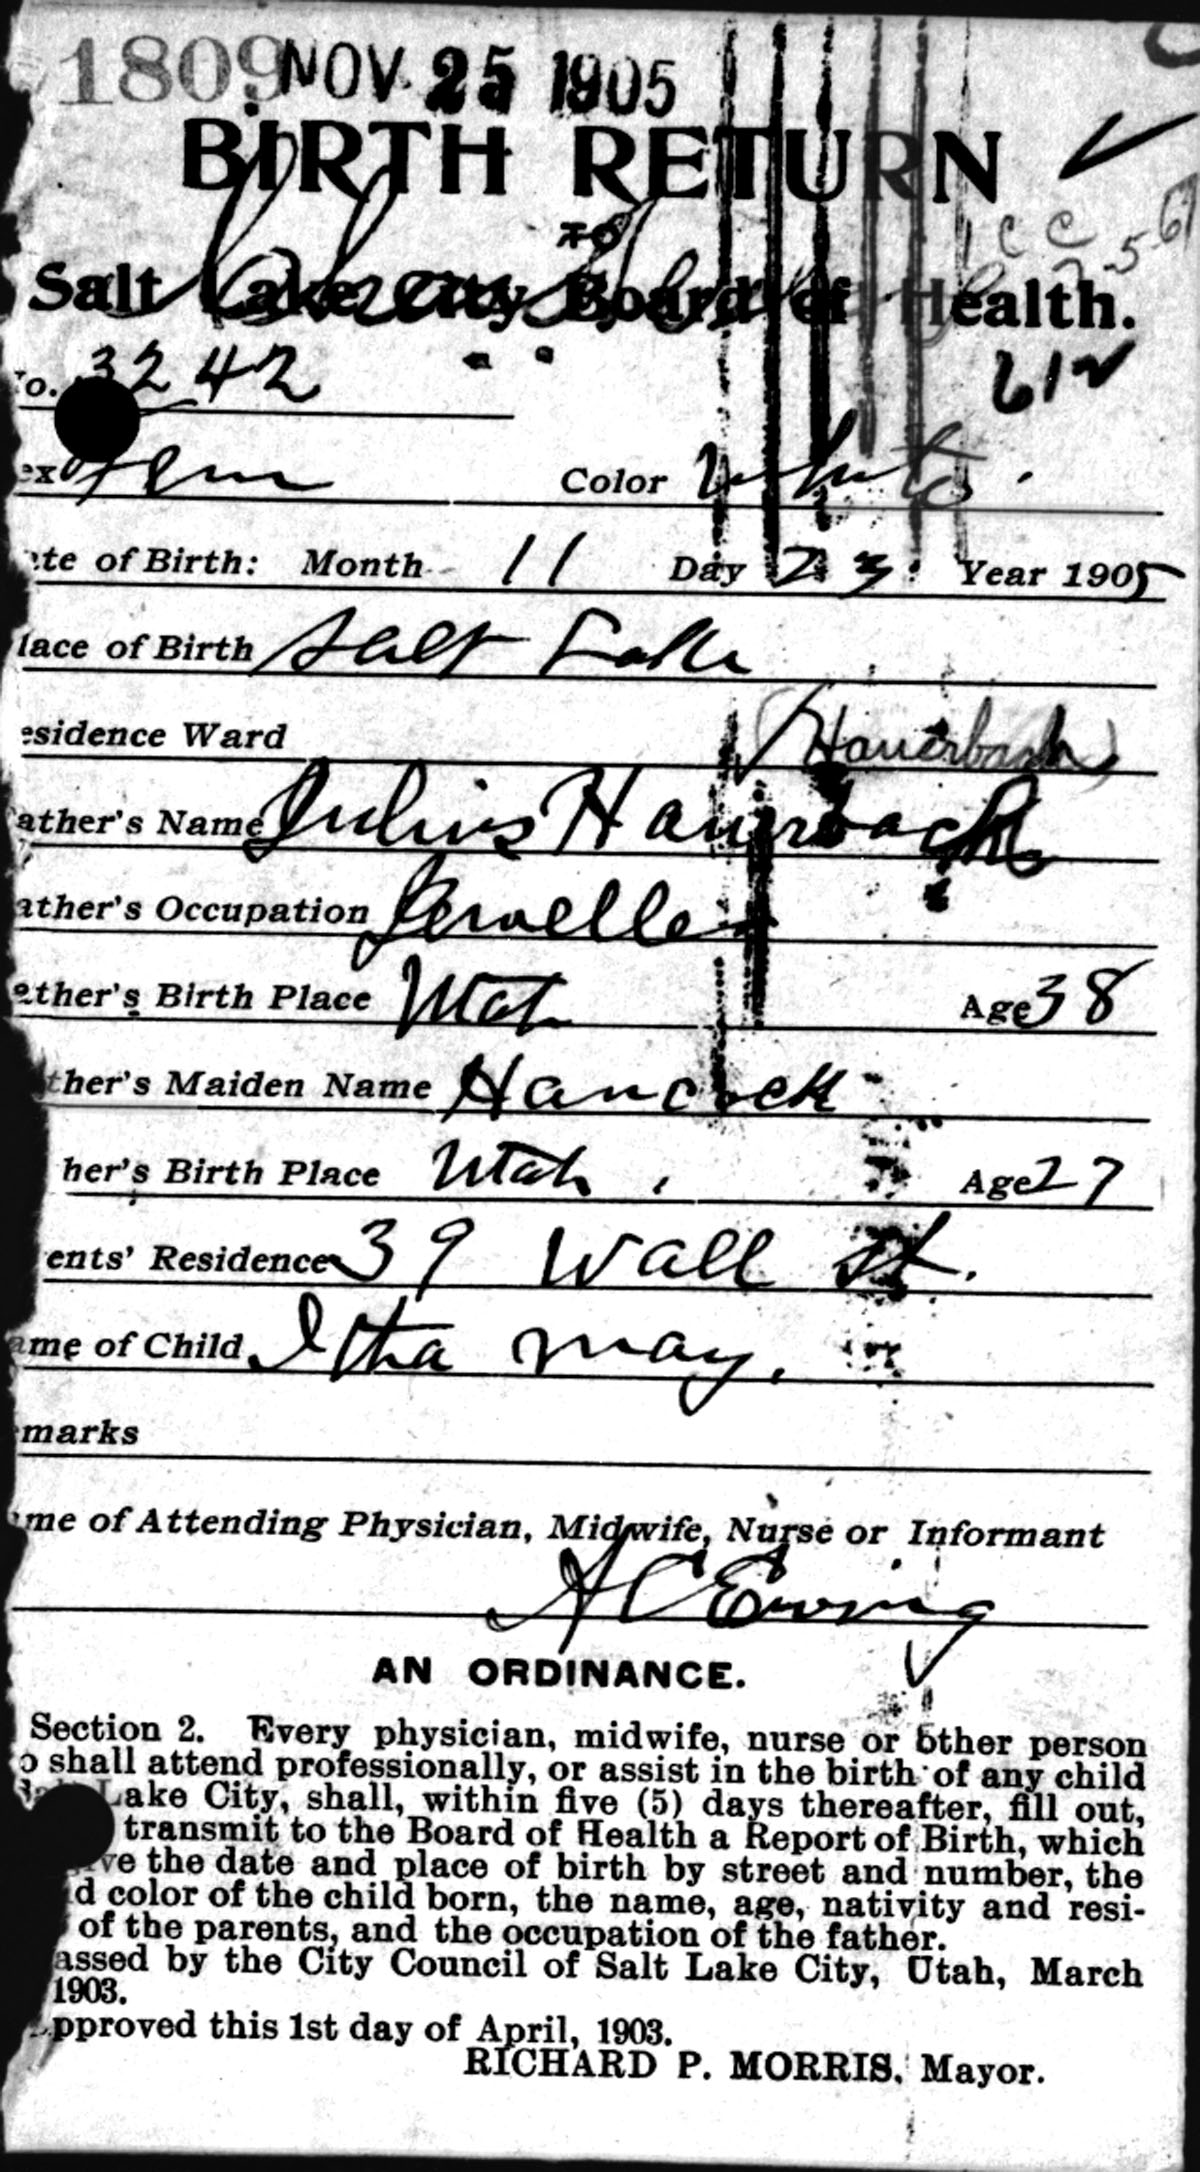 1809 NOV 25 1905
BIRTH RETURN
TO
Salt Lake City Board of Health.
o. 3242
612
ex Fem Color White.
ate of Birth: Month 11 Day 23 Year 1905
lace of Birth Salt Lake
esidence Ward
(Hauerbach)
ather's Name Julius Hauerbach
ather's Occupation Jeweller
ather's Birth Place Utah Age 38
ther's Maiden Name Hancock
her's Birth Place Utah, Age 27
ents' Residence 39 Wall St.
ame of Child Itha May.
marks
me of Attending Physician, Midwife, Nurse or Informant
A C Ewing
AN ORDINANCE.
Section 2. Every physician, midwife, nurse or other person
o shall attend professionally, or assist in the birth of any child
Lake City, shall, within five (5) days thereafter, fill out,
transmit to the Board of Health a Report of Birth, which
ve the date and place of birth by street and number, the
d color of the child born, the name, age, nativity and resi-
of the parents, and the occupation of the father.
assed by the City Council of Salt Lake City, Utah, March
1903.
pproved this 1st day of April, 1903.
RICHARD P. MORRIS, Mayor.